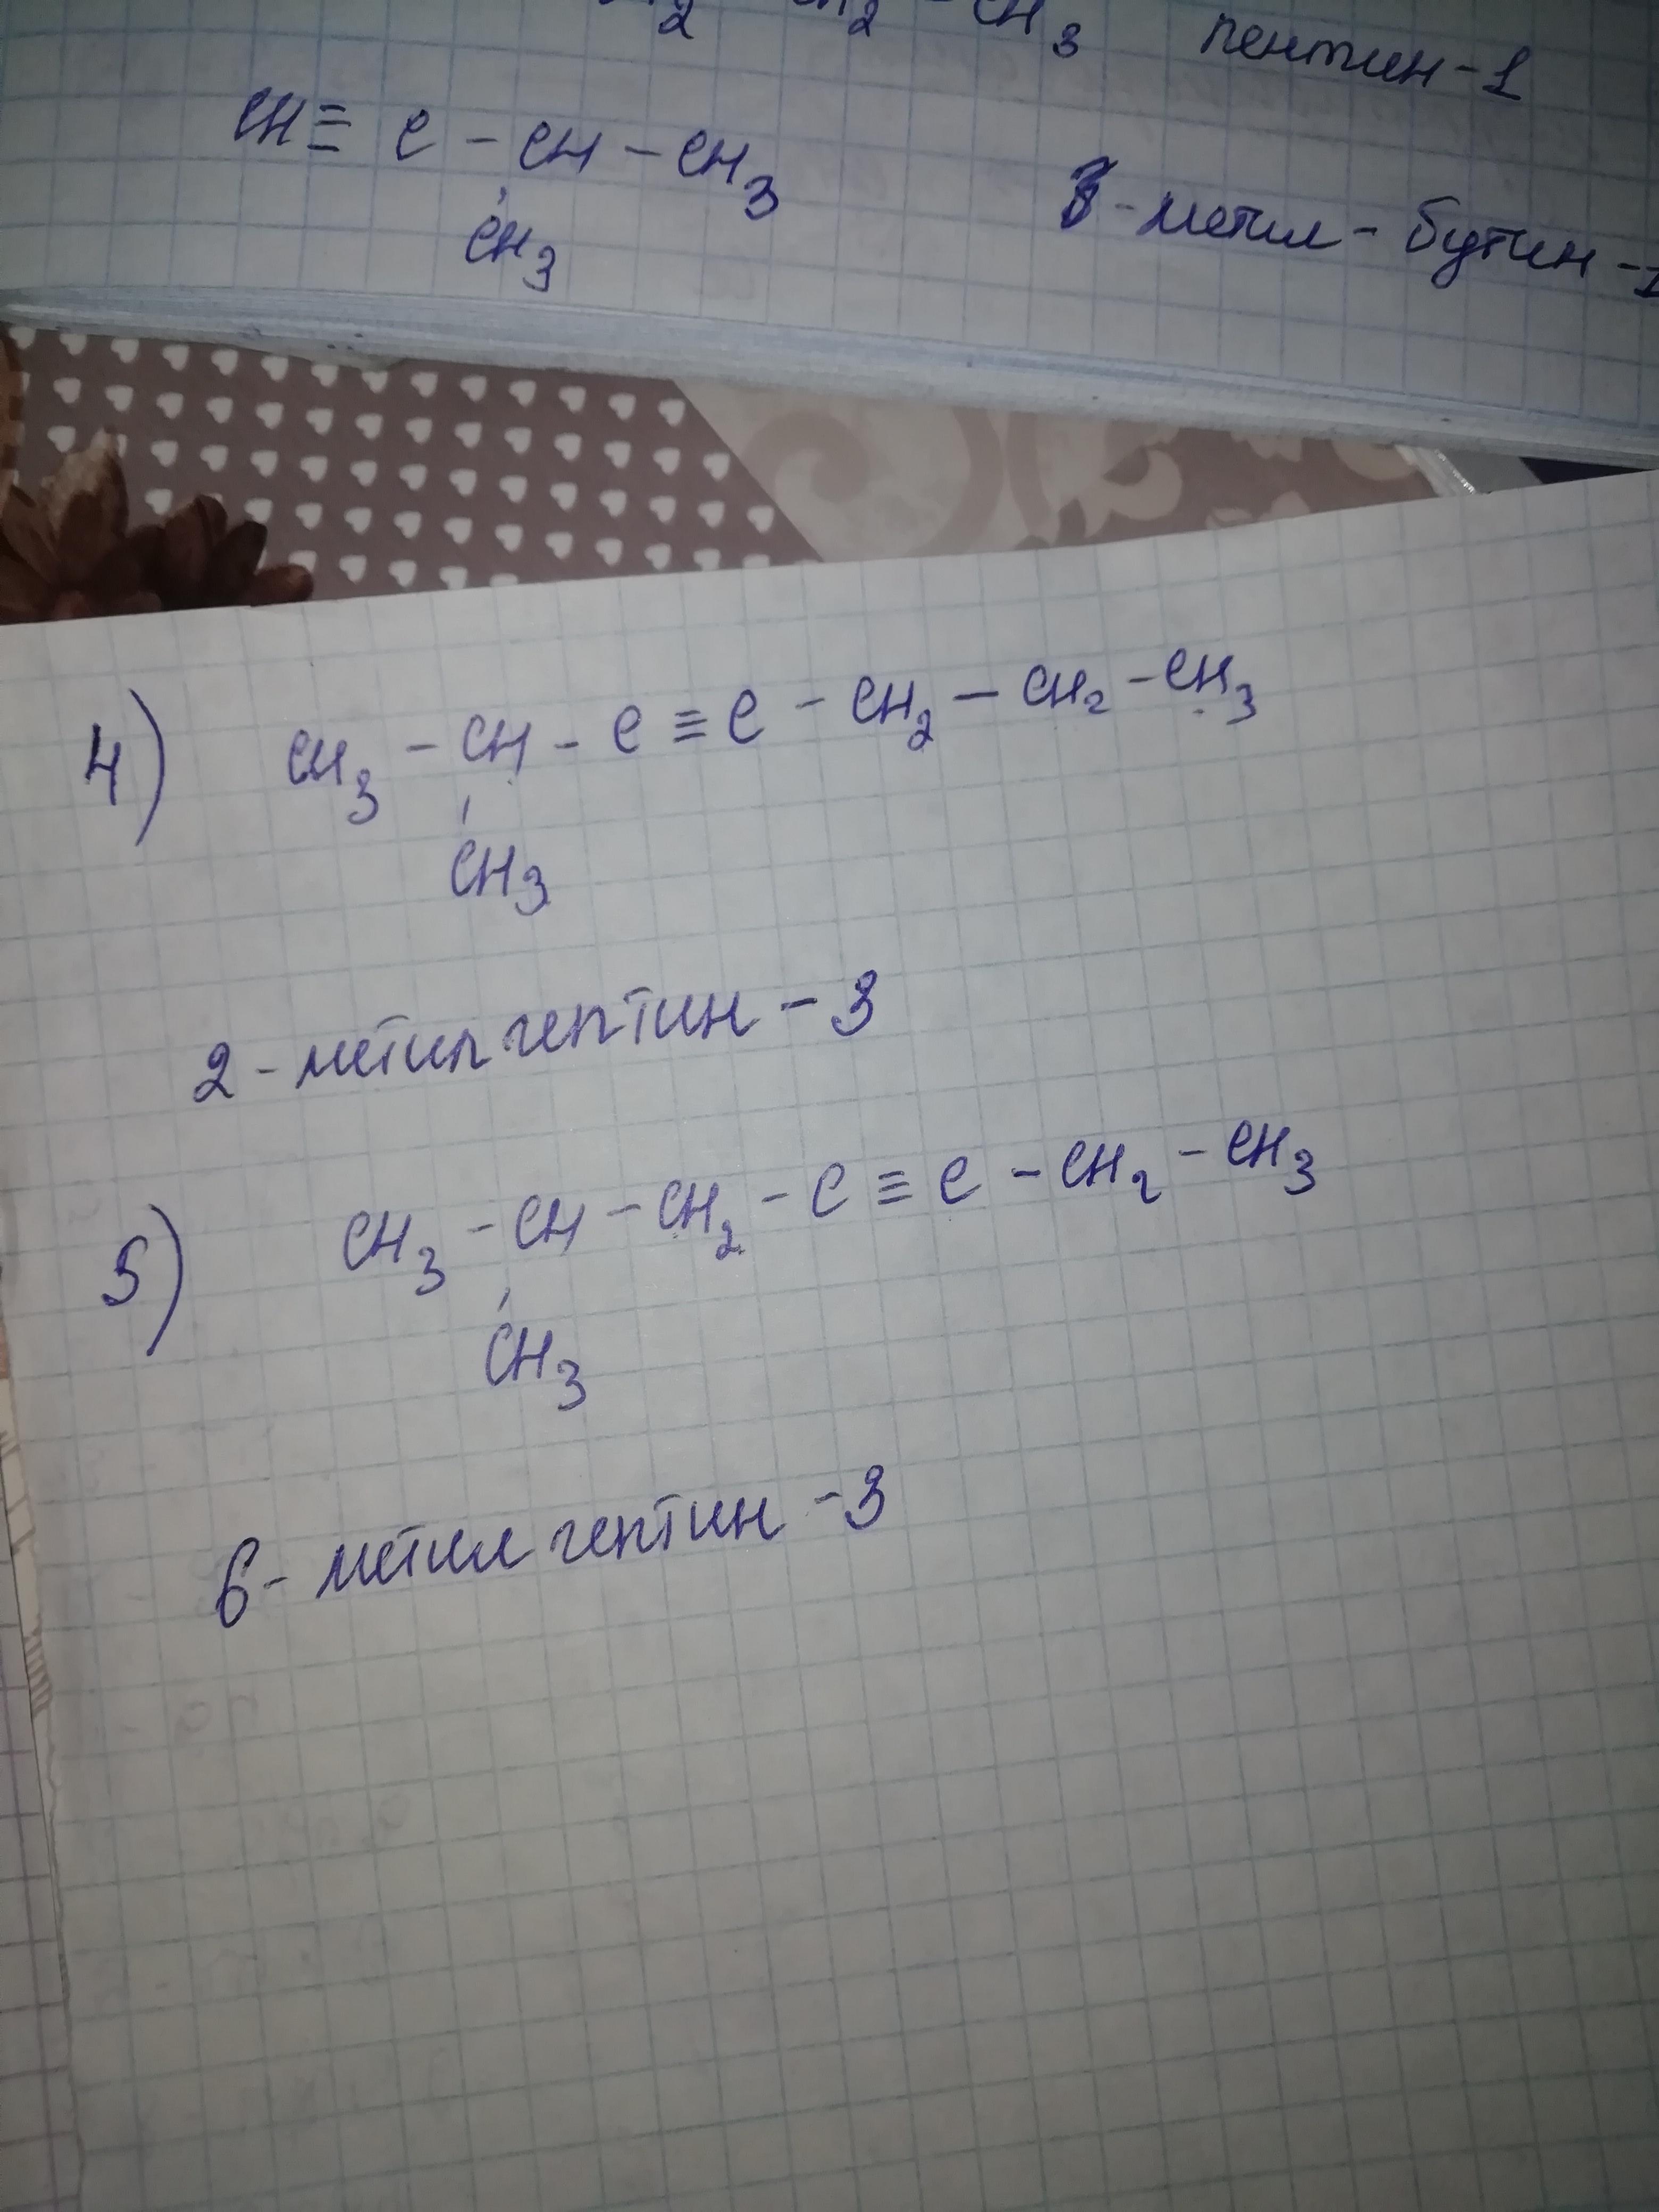 CH₂ - CH₃ пентин-1
CH≡C-CH-CH₃
CH₃
3-метил-бутин-1
4) CH₃-CH-C≡C-CH₂-CH₂-CH₃
CH₃
2-метилгептин-3
5) CH₃-CH-CH₂-C≡C-CH₂-CH₃
CH₃
6-метил гептин-3